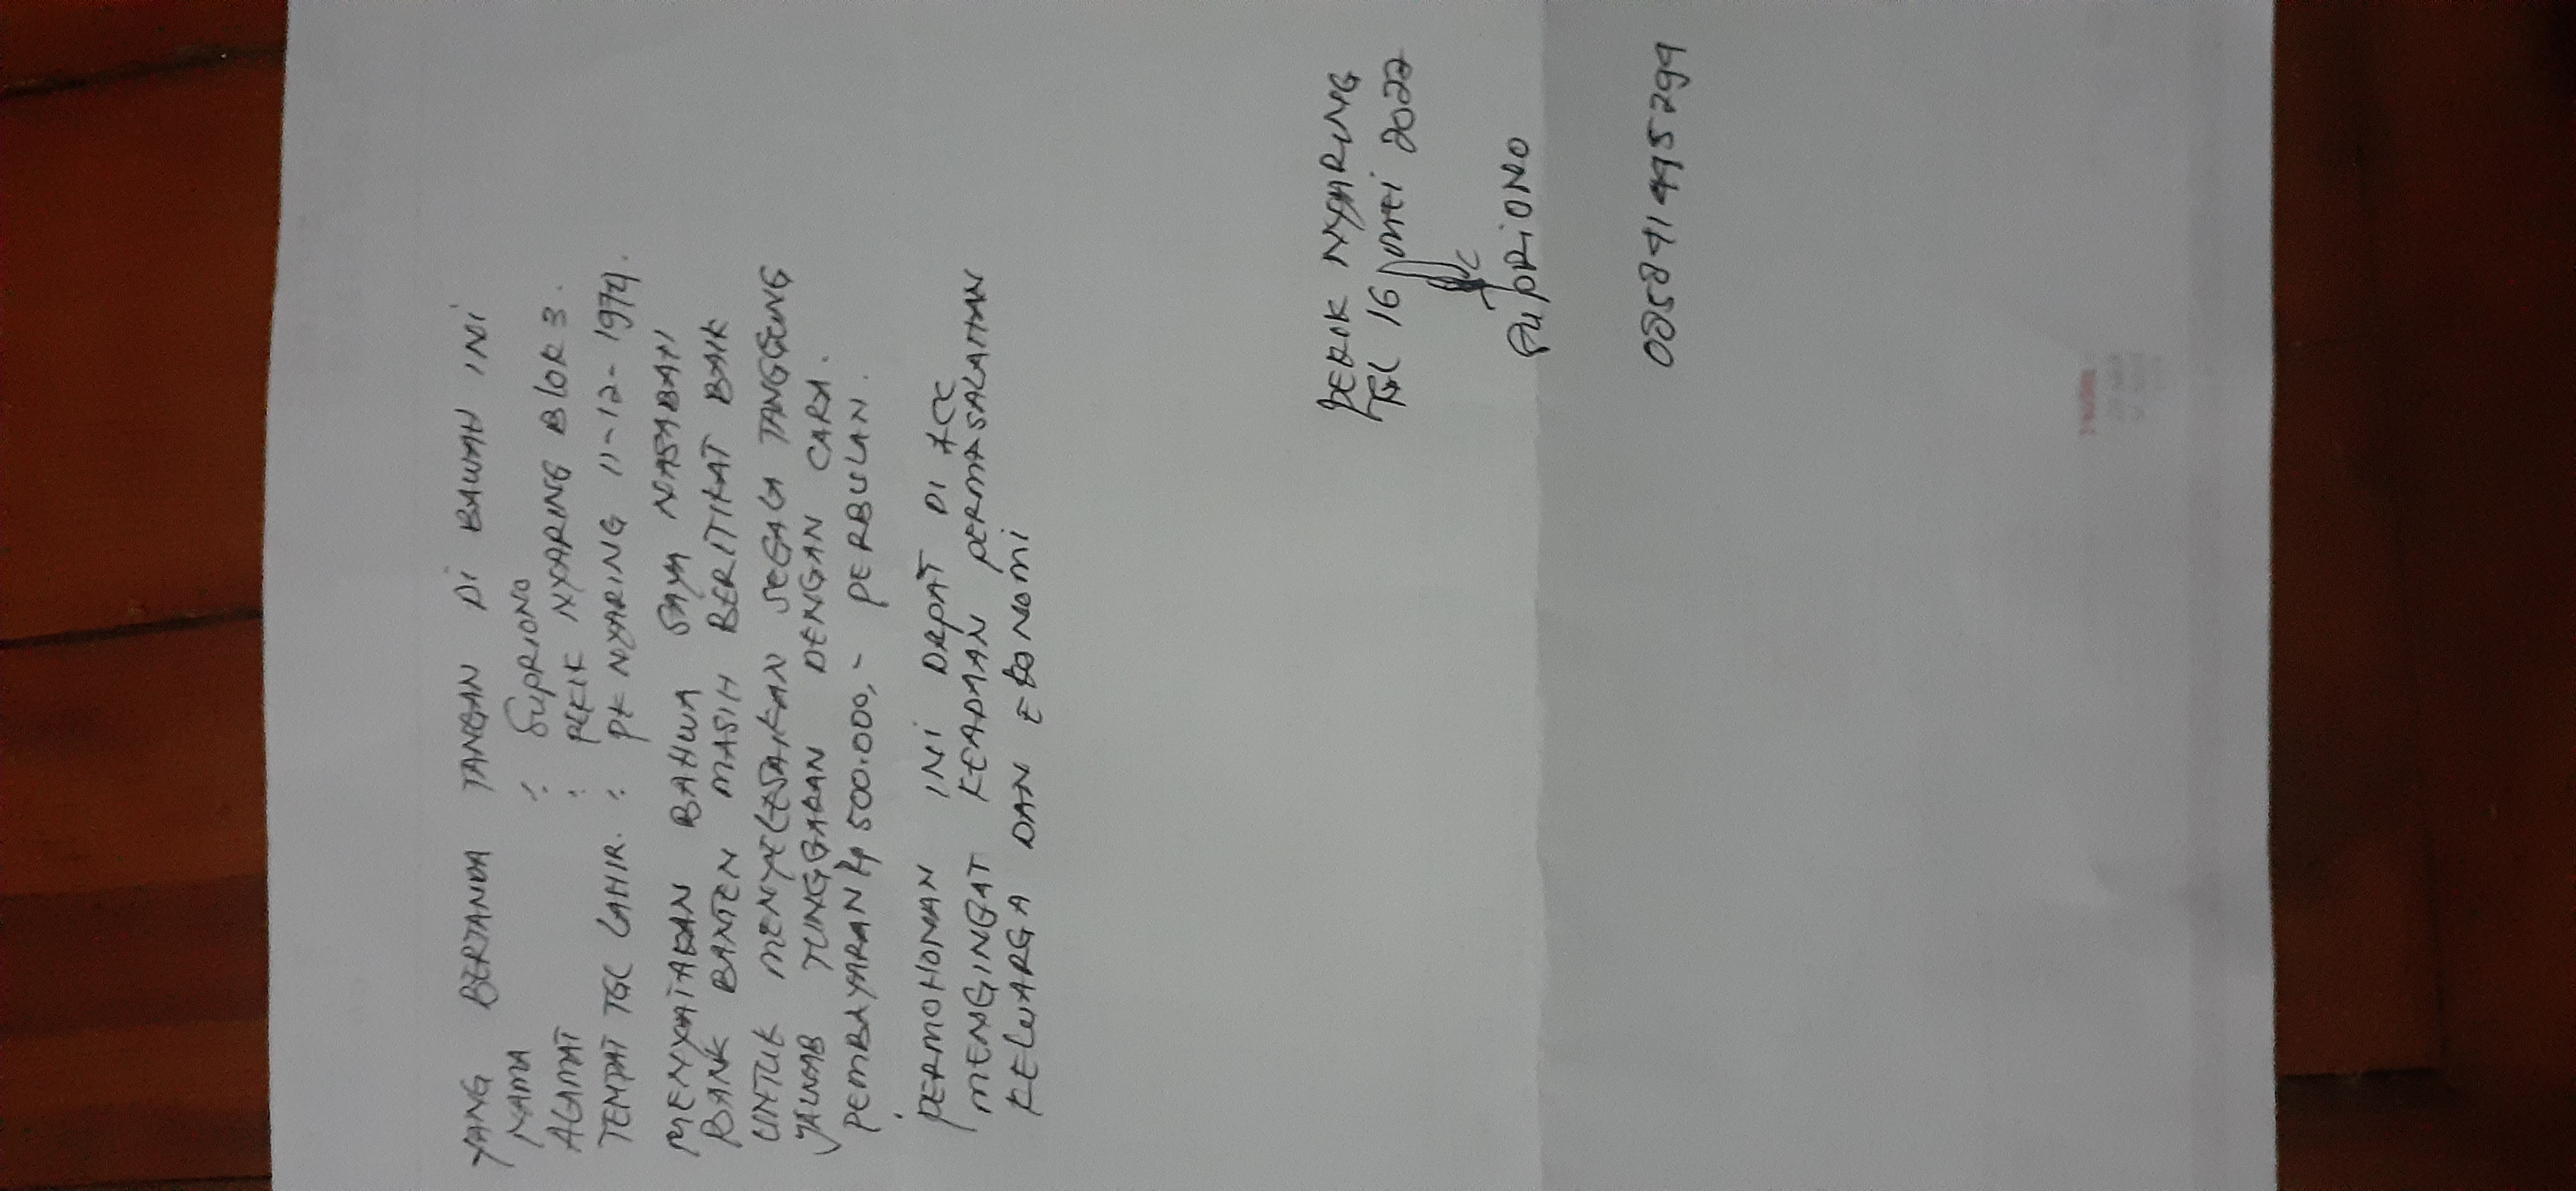 YANG BERTANDA TANGAN DI BAWAH INI
NAMA : SUPRIONO
ALAMAT : PEKIK NYARING BLOK 3.
TEMPAT TGL LAHIR. : PK NYARING 11-12-1974.
MENYATAKAN BAHWA SAYA NASABAH
BANK BANTEN MASIH BERITIKAT BAIK
UNTUK MENYELESAIKAN SEGALA TANGGUNG
JAWAB TUNGGARAN DENGAN CARA.
PEMBAYARAN Rp 500.000,- PERBULAN.
PERMOHONAN INI DAPAT DI ACC
MENGINGAT KEADAAN PERMASALAHAN
KELUARGA DAN EKONOMI
PEKIK NYARING
TGL 16 MEI 2022
SUPRIONO